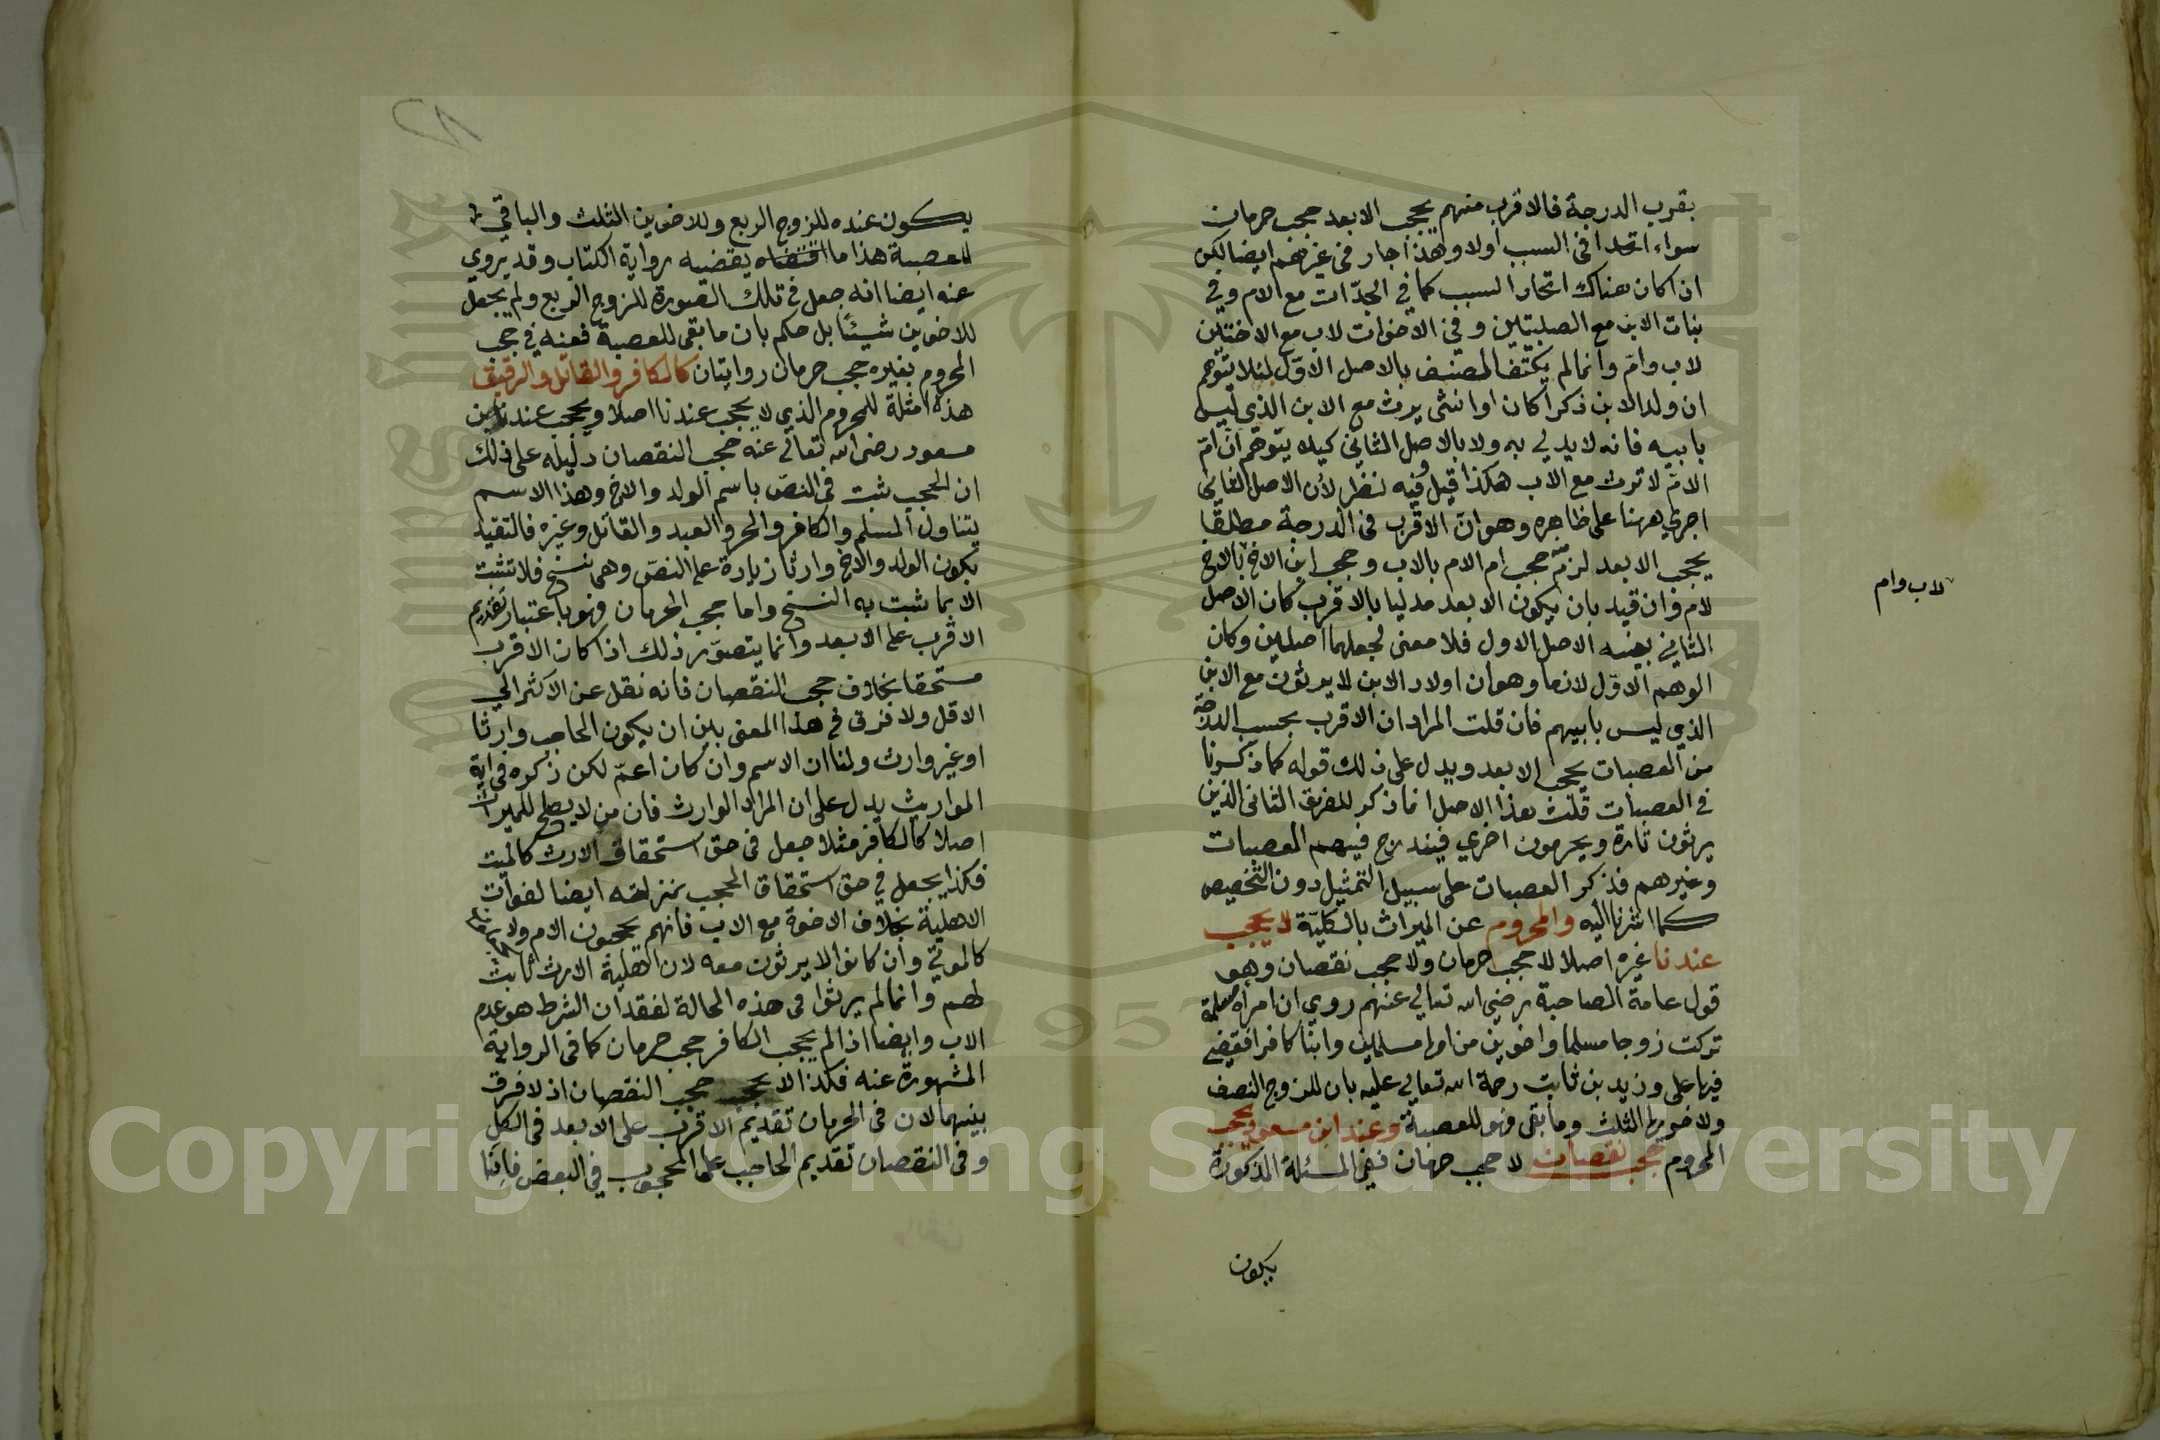 بقرب الدرجة فالاقرب منهم يحجب الابعد حجب حرمان
سواء اتحدا فى السبب اولا وهذا جار فى غيرهم ايضا لكن
ان كان هناك اتحاد السبب كما في الجدّات مع الام وفي
بنات الابن مع الصلبيتين وفى الاخوات لاب مع الاختين
لاب وامّ وانما لم يكتف المصنف بالاصل الاوّل لئلا يتوهم
ان ولد الابن ذكرا كان او انثى يرث مع الابن الذي ليس
بابيه فانه لا يدلي به ولا بالاصل الثاني كيلا يتوهّم انّ امّ
الامّ لا ترث مع الاب هكذا قيل وفيه نظر لان الاصل الثاني
اجري ههنا على ظاهره وهو انّ الاقرب فى الدرجة مطلقا
يحجب الابعد لزم حجب ام الام بالاب وحجب ابن الاخ بالاخ
لام وان قيد بان يكون الابعد مدليا بالاقرب كان الاصل
الثاني بعينه الاصل الاول فلا معنى لجعلهما اصلين وكان
الوهم الاوّل لازما وهو ان اولاد الابن لا يرثون مع الابن
الذي ليس بابيهم فان قلت المراد ان الاقرب بحسب الدرجة
من العصبات يحجب الابعد ويدل على ذلك قوله كما ذكرنا
فى العصبات قلت هذا الاصل انما ذكر للفريق الثانى الذين
يرثون تارة ويحرمون اخري فيندرج فيهم العصبات
وغيرهم فذكر العصبات على سبيل التمثيل دون التخصيص
كما اشرنا اليه والمحروم عن الميراث بالكليّة لا يحجب
عندنا غيره اصلا لا حجب حرمان ولا حجب نقصان وهو
قول عامة الصاحبة رضي الله تعالي عنهم روي ان امرأة مسلمة
تركت زوجا مسلما واخوين من امها مسلمين وابنا كافرا فقضي
فيها على وزيد بن ثابت رحمة الله تعالي عليه بان للزوج النصف
ولاخويها الثلث وما بقى فهو للعصبة وعند ابن مسعود يحجب
المحروم حجب نقصان لا حجب حرمان ففى المسئلة المذكورة
لاب وام
يكون
يكون عنده للزوج الربع وللاخوين الثلث والباقي
للعصبة هذا ما يقضيه رواية الكتاب وقد يروي
عنه ايضا انه جعل فى تلك الصورة للزوج الربع ولم يجعل
للاخوين شيئًا بل حكم بان ما بقى للعصبة فعنه في حجب
المحروم بغيره حجب حرمان روايتان كالكافر والقاتل والرقيق
هذه امثلة للمحروم الذي لا يحجب عندنا اصلا ويحجب عند ابن
مسعود رضى الله تعالى عنه حجب النقصان دليله على ذلك
ان الحجب ثبت فى النصّ باسم الولد والاخ وهذا الاسم
يتناول المسلم والكافر والحر والعبد والقاتل وغيره فالتقيد
بكون الولد والاخ وارثا زيادة على النصّ وهى نسخ فلا تثبت
الا بما ثبت به النسخ واما حجب الحرمان فهو باعتبار تقديم
الاقرب على الابعد وانما يتصوّر ذلك اذا كان الاقرب
مستحقا بخلاف حجب النقصان فانه نقل عن الاكثر الي
الاقل ولا فرق فى هذا المعنى بين ان يكون الحاجب وارثا
او غير وارث ولنا ان الاسم وان كان اعمّ لكن ذكره فى اية
المواريث يدل على ان المراد الوارث فان من لا يصلح للميراث
اصلا كالكافر مثلا جعل فى حق استحقاق الارث كالميت
فكذا يجعل في حق استحقاق الحجب بمنزلته ايضا لفوات
الاهلية بخلاف الاخوة مع الاب فانهم يحجبون الام ولا
كالموتي وان كانوا لا يرثون معه لان اهلية الارث ثابت
لهم وانما لم يرثوا فى هذه الحالة لفقدان الشرط هو عدم
الاب وايضا اذا لم يحجب الكافر حجب حرمان كما فى الرواية
المشهورة عنه فكذا لا يحجب حجب النقصان اذ لا فرق
بينهما لان فى الحرمان تقديم الاقرب على الابعد فى الكل
وفى النقصان تقديم الحاجب على المحجوب في البعض فاذا
Copyright © King Saud University
1957